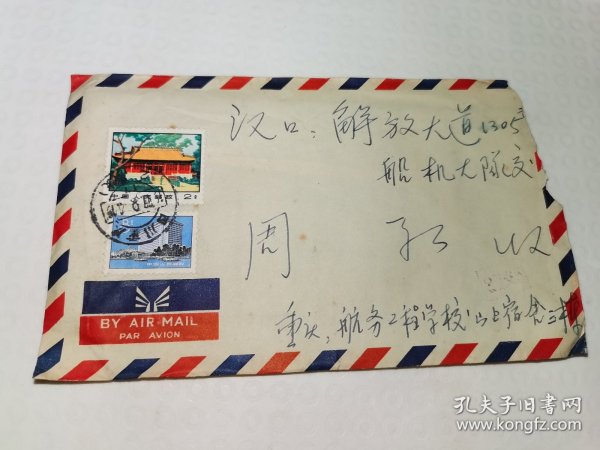 汉口：解放大道1305号
船机大队交
周 红 收
重庆，航务工程学校山上宿舍三栋
BY AIR MAIL
PAR AVION
孔夫子旧书网
www.kongfz.com